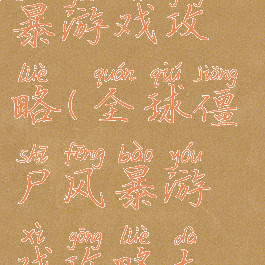 暴游戏攻
lüè quán qiú jiāng
略(全球僵
shī fēng bào yóu
尸风暴游
xì gōng lüè dà
戏攻略大